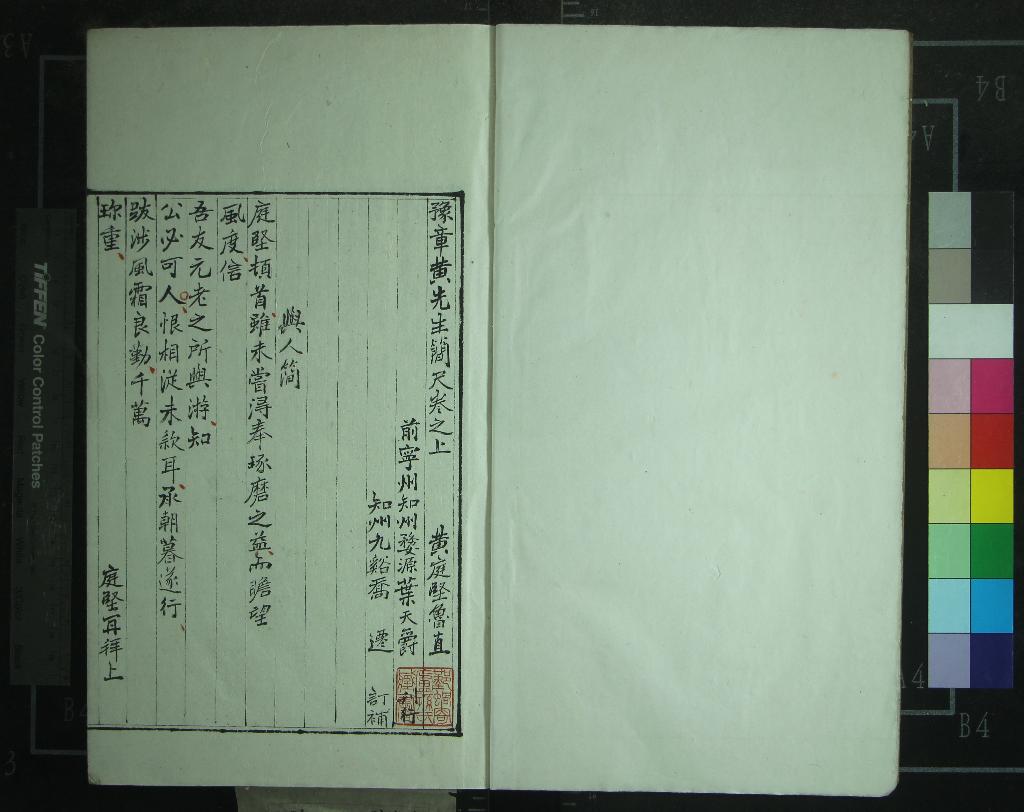 豫章黄先生簡尺卷之上 黄庭堅魯直
前寧州知州婺源葉天爵 刊行
知州九谿喬 遷 訂補
與人簡
庭堅頓首雖未嘗得奉琢磨之益而瞻望
風度信
吾友元老之所與游知
公必可人恨相從未款耳承朝暮遂行
跋涉風霜良勤千萬
珎重
庭堅再拜上
TIFFEN Color Control Patches
A3
B4
A4
A4
B4
B4
3